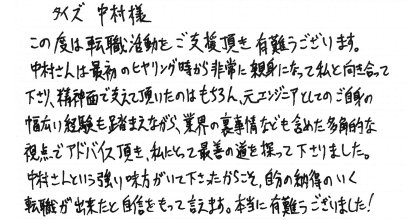 タイズ 中村様
この度は転職活動をご支援頂き有難うございます。
中村さんは最初のヒヤリング時から非常に親身になって私と向き合って
下さり、精神面で支えて頂いたのはもちろん、元エンジニアとしてのご自身の
幅広い経験も踏まえながら、業界の裏事情なども含めた多角的な
視点でアドバイス頂き、私にとって最善の道を探って下さりました。
中村さんという強い味方がいて下さったからこそ、自分の納得のいく
転職が出来たと自信をもって言えます。本当に有難うございました!